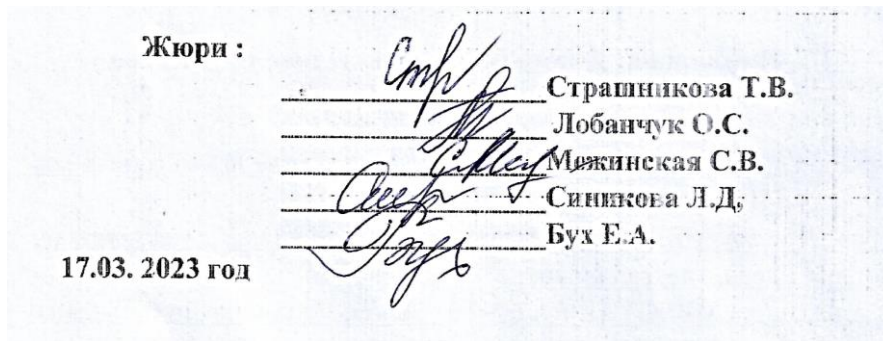 Жюри :
Страшникова Т.В.
Лобанчук О.С.
Мяжинская С.В.
Синикова Л.Д,
Бух Е.А.
17.03. 2023 год